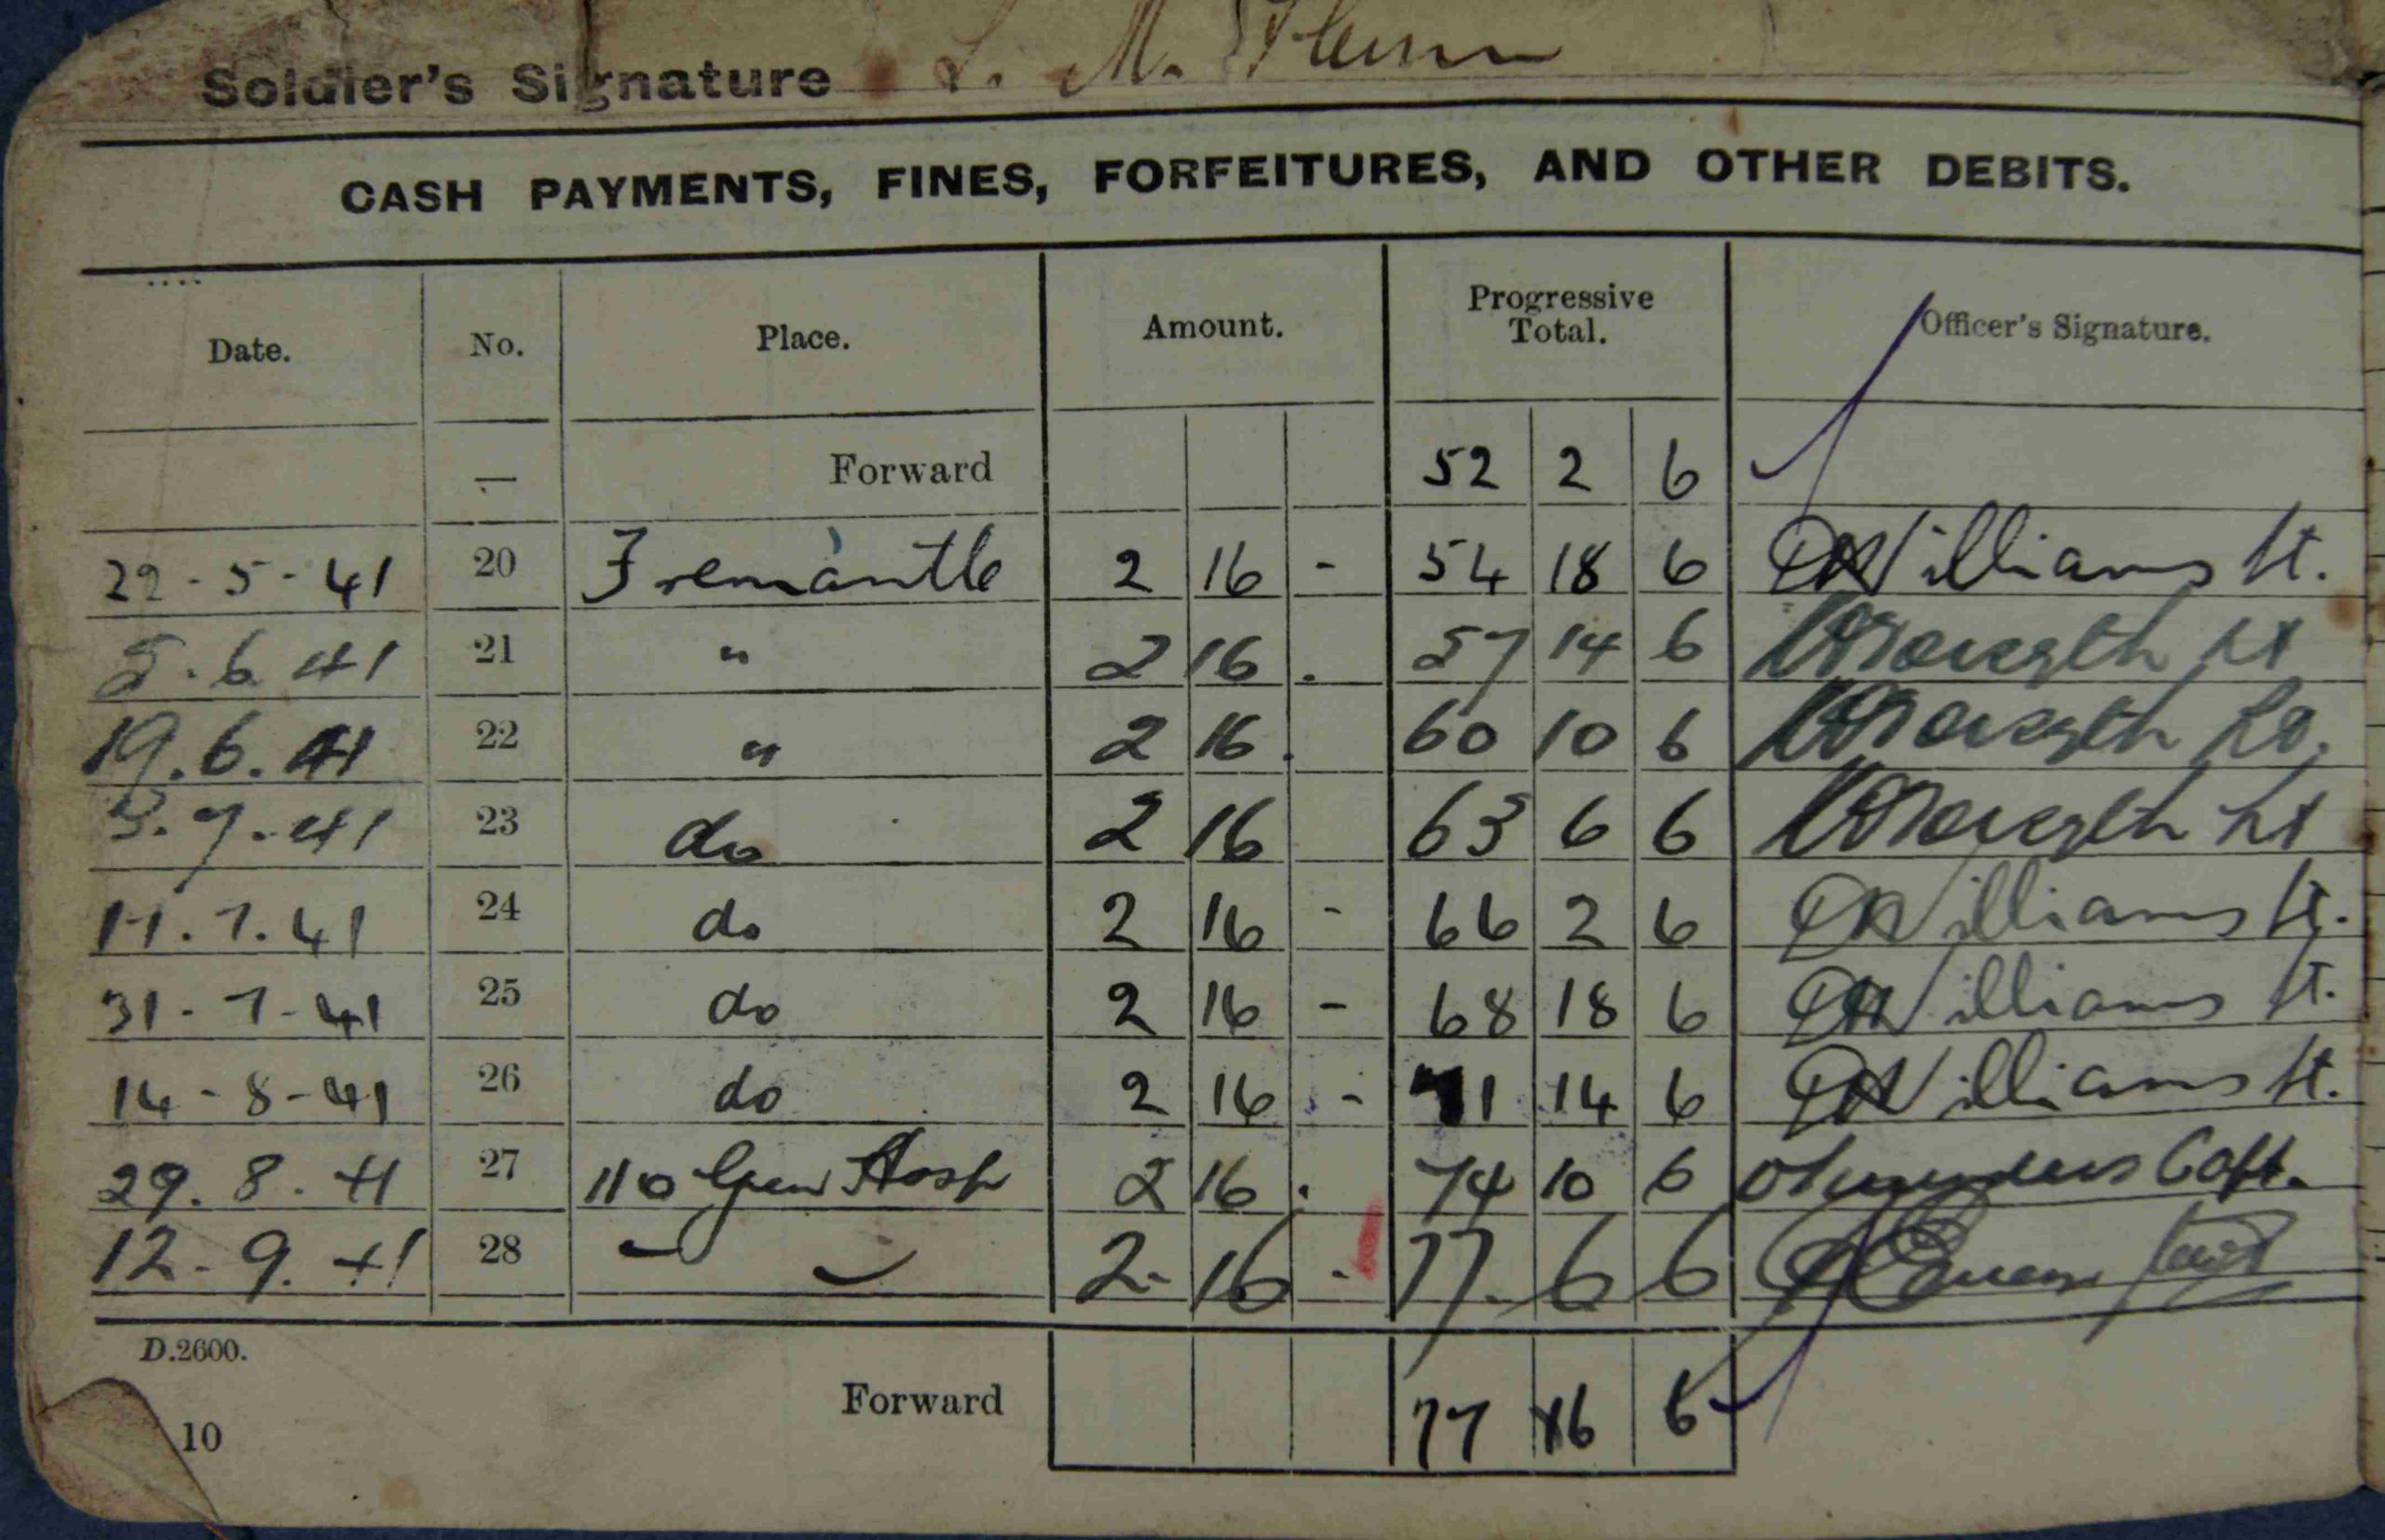 Soldier's Signature L. M.
CASH PAYMENTS, FINES, FORFEITURES, AND OTHER DEBITS.
Date. No. Place. Amount. Progressive Total. Officer's Signature.
— Forward 52 2 6
22-5-41 20 Fremantle 2 16 - 54 18 6 Williams Lt.
5.6.41 21 " 2 16 . 57 14 6 Lt
19.6.41 22 " 2 16 . 60 10 6
3.7.41 23 do 2 16 63 6 6 Lt
24 do 2 16 - 66 2 6 Williams Lt.
31-7-41 25 do 2 16 - 68 18 6 Williams Lt.
14-8-41 26 do 2 16 - 71 14 6 Williams Lt.
29.8.41 27 110 Gen Hosp 2 16 . 74 10 6 Capt.
12-9.41 28 2- 16 - 77. 6 6
D.2600.
Forward 77 6 6
10